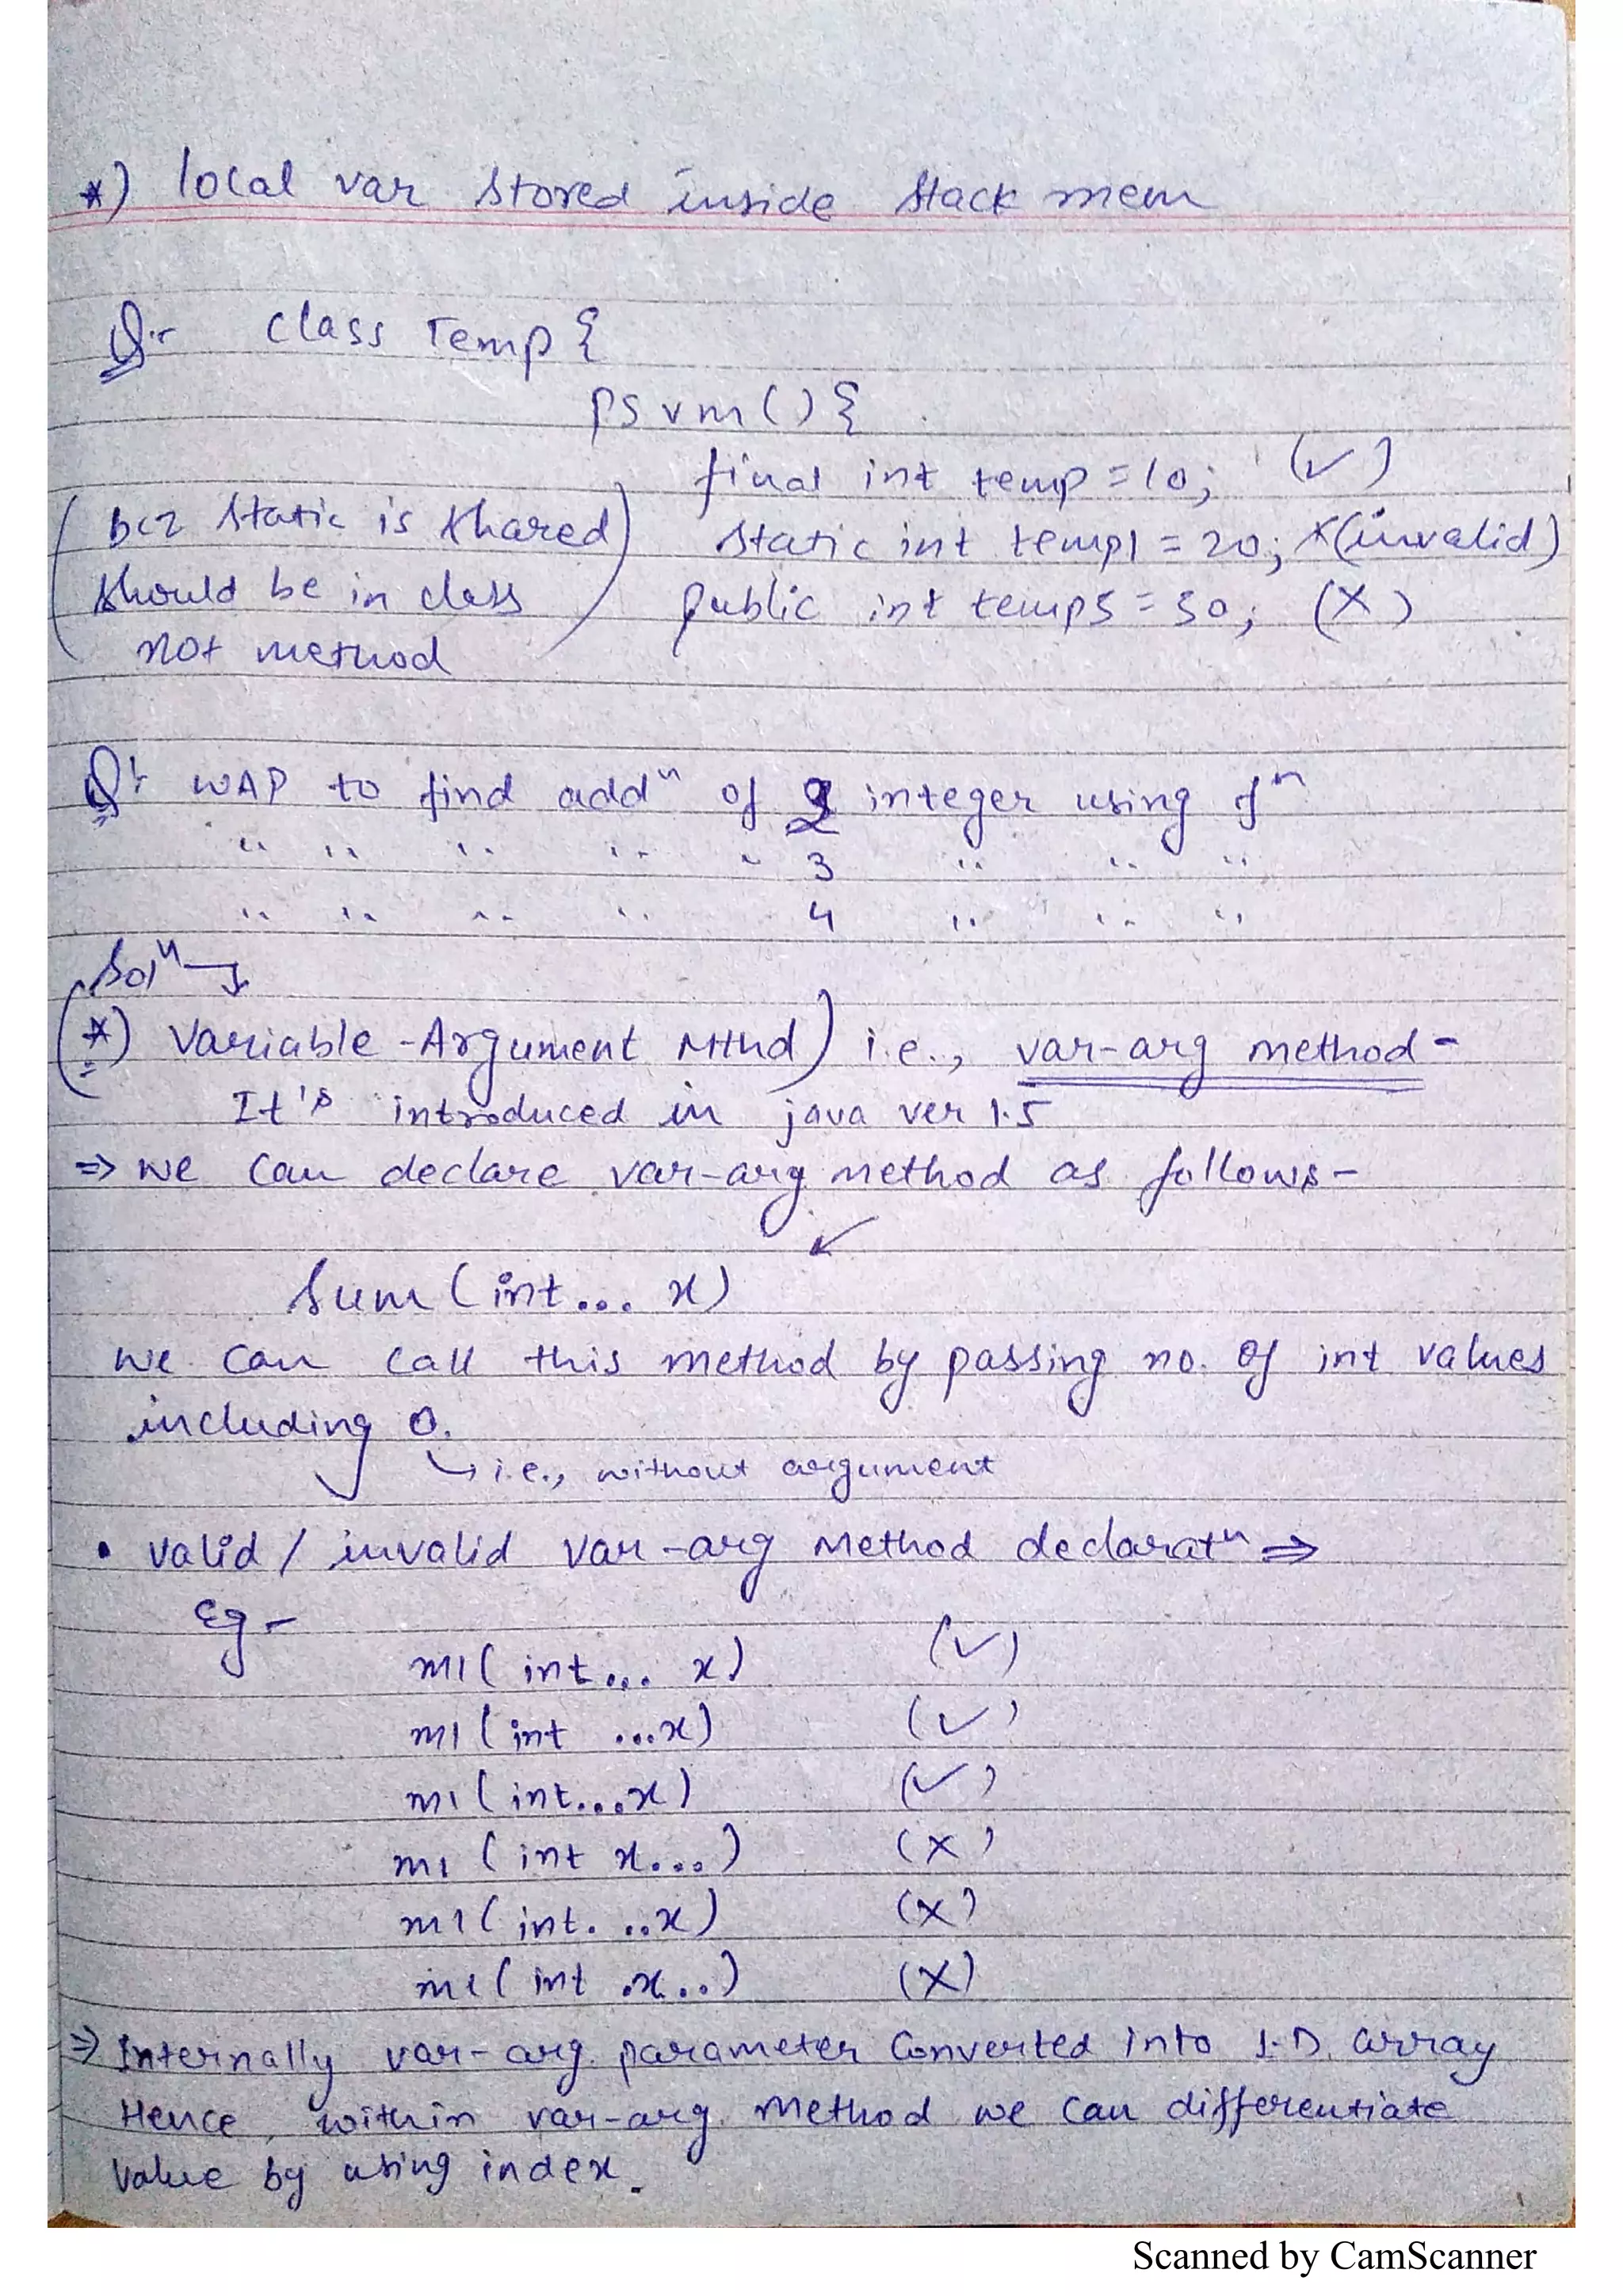 *) local var stored inside stack mem
Q:- class Temp {
psvm () {
final int temp = 10; (✓)
( bcz static is shared ) static int temp1 = 20; x (invalid)
should be in class public int temp3 = 30; (X)
not method
Q:- WAP to find addⁿ of 2 integer using fⁿ
" " " " " 3 " " "
" " " " 4 " " "
Solⁿ →
(*) Variable-Argument Mthd) i.e., var-arg method -
It's introduced in java ver 1.5
⇒ we can declare var-arg method as follows -
↙
Sum (int... x)
we can call this method by passing no. of int values
including 0.
↳ i.e., without argument
• valid / invalid var-arg Method declaratⁿ ⇒
Eg -
m1( int... x) (✓)
m1 (int ...x) (✓)
m1 (int...x) (✓)
m1 (int x...) (X)
m1 (int. ..x) (X)
m1 (int .x..) (X)
⇒ Internally var-arg. parameter Converted into 1-D. array
Hence, within var-arg. Method we can differentiate
value by using index.
Scanned by CamScanner